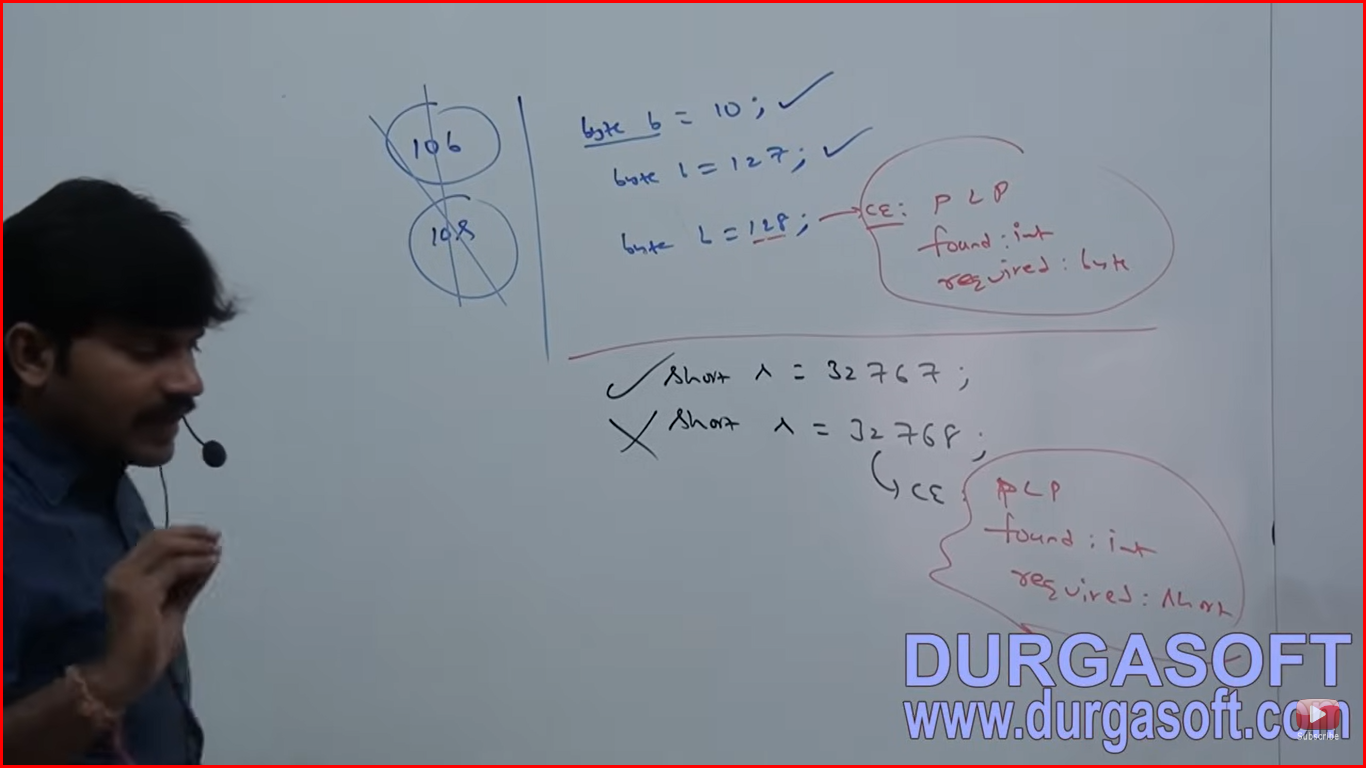 10b
10s
byte b = 10;
byte b = 127;
byte b = 128;
CE: PLP
found: int
required: byte
short s = 32767;
short s = 32768;
CE: PLP
found: int
required: short
DURGASOFT
www.durgasoft.com
Subscribe